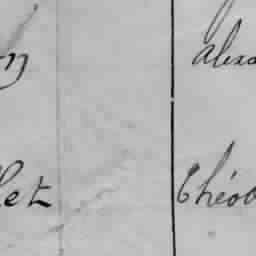 alexa
let Théob